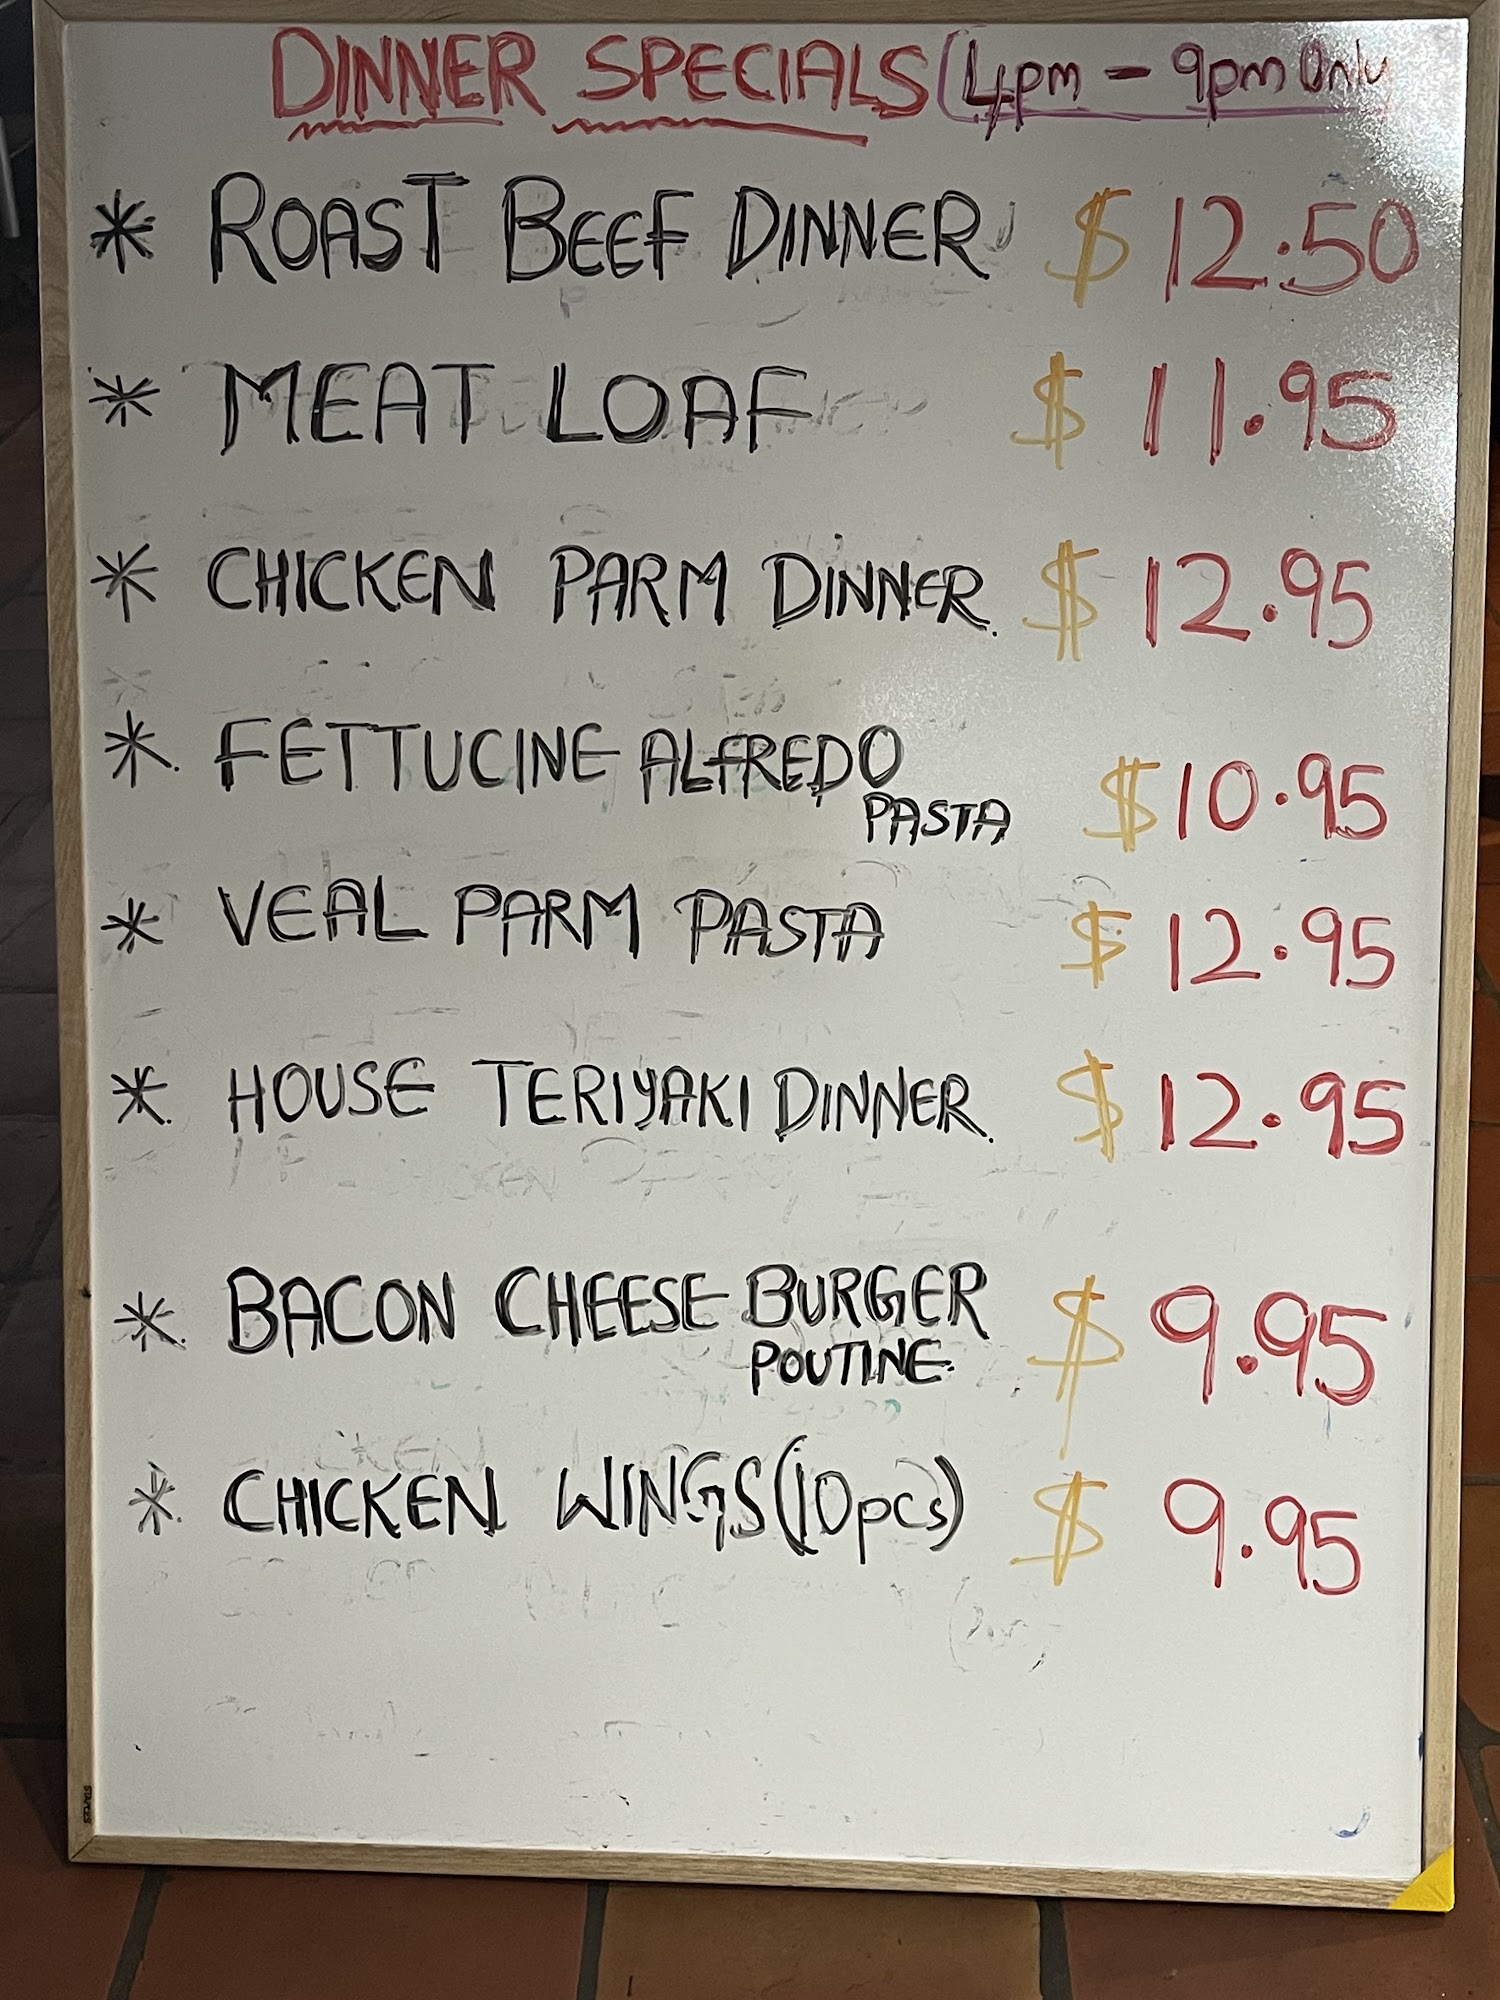 DINNER SPECIALS (4pm - 9pm Only
* ROAST BEEF DINNER $ 12.50
* MEAT LOAF $ 11.95
* CHICKEN PARM DINNER. $ 12.95
*. FETTUCINE ALFREDO
PASTA $ 10.95
* VEAL PARM PASTA $ 12.95
*. HOUSE TERIYAKI DINNER. $ 12.95
*. BACON CHEESE BURGER
POUTINE. $ 9.95
*. CHICKEN WINGS (10pcs) $ 9.95
STAPLES